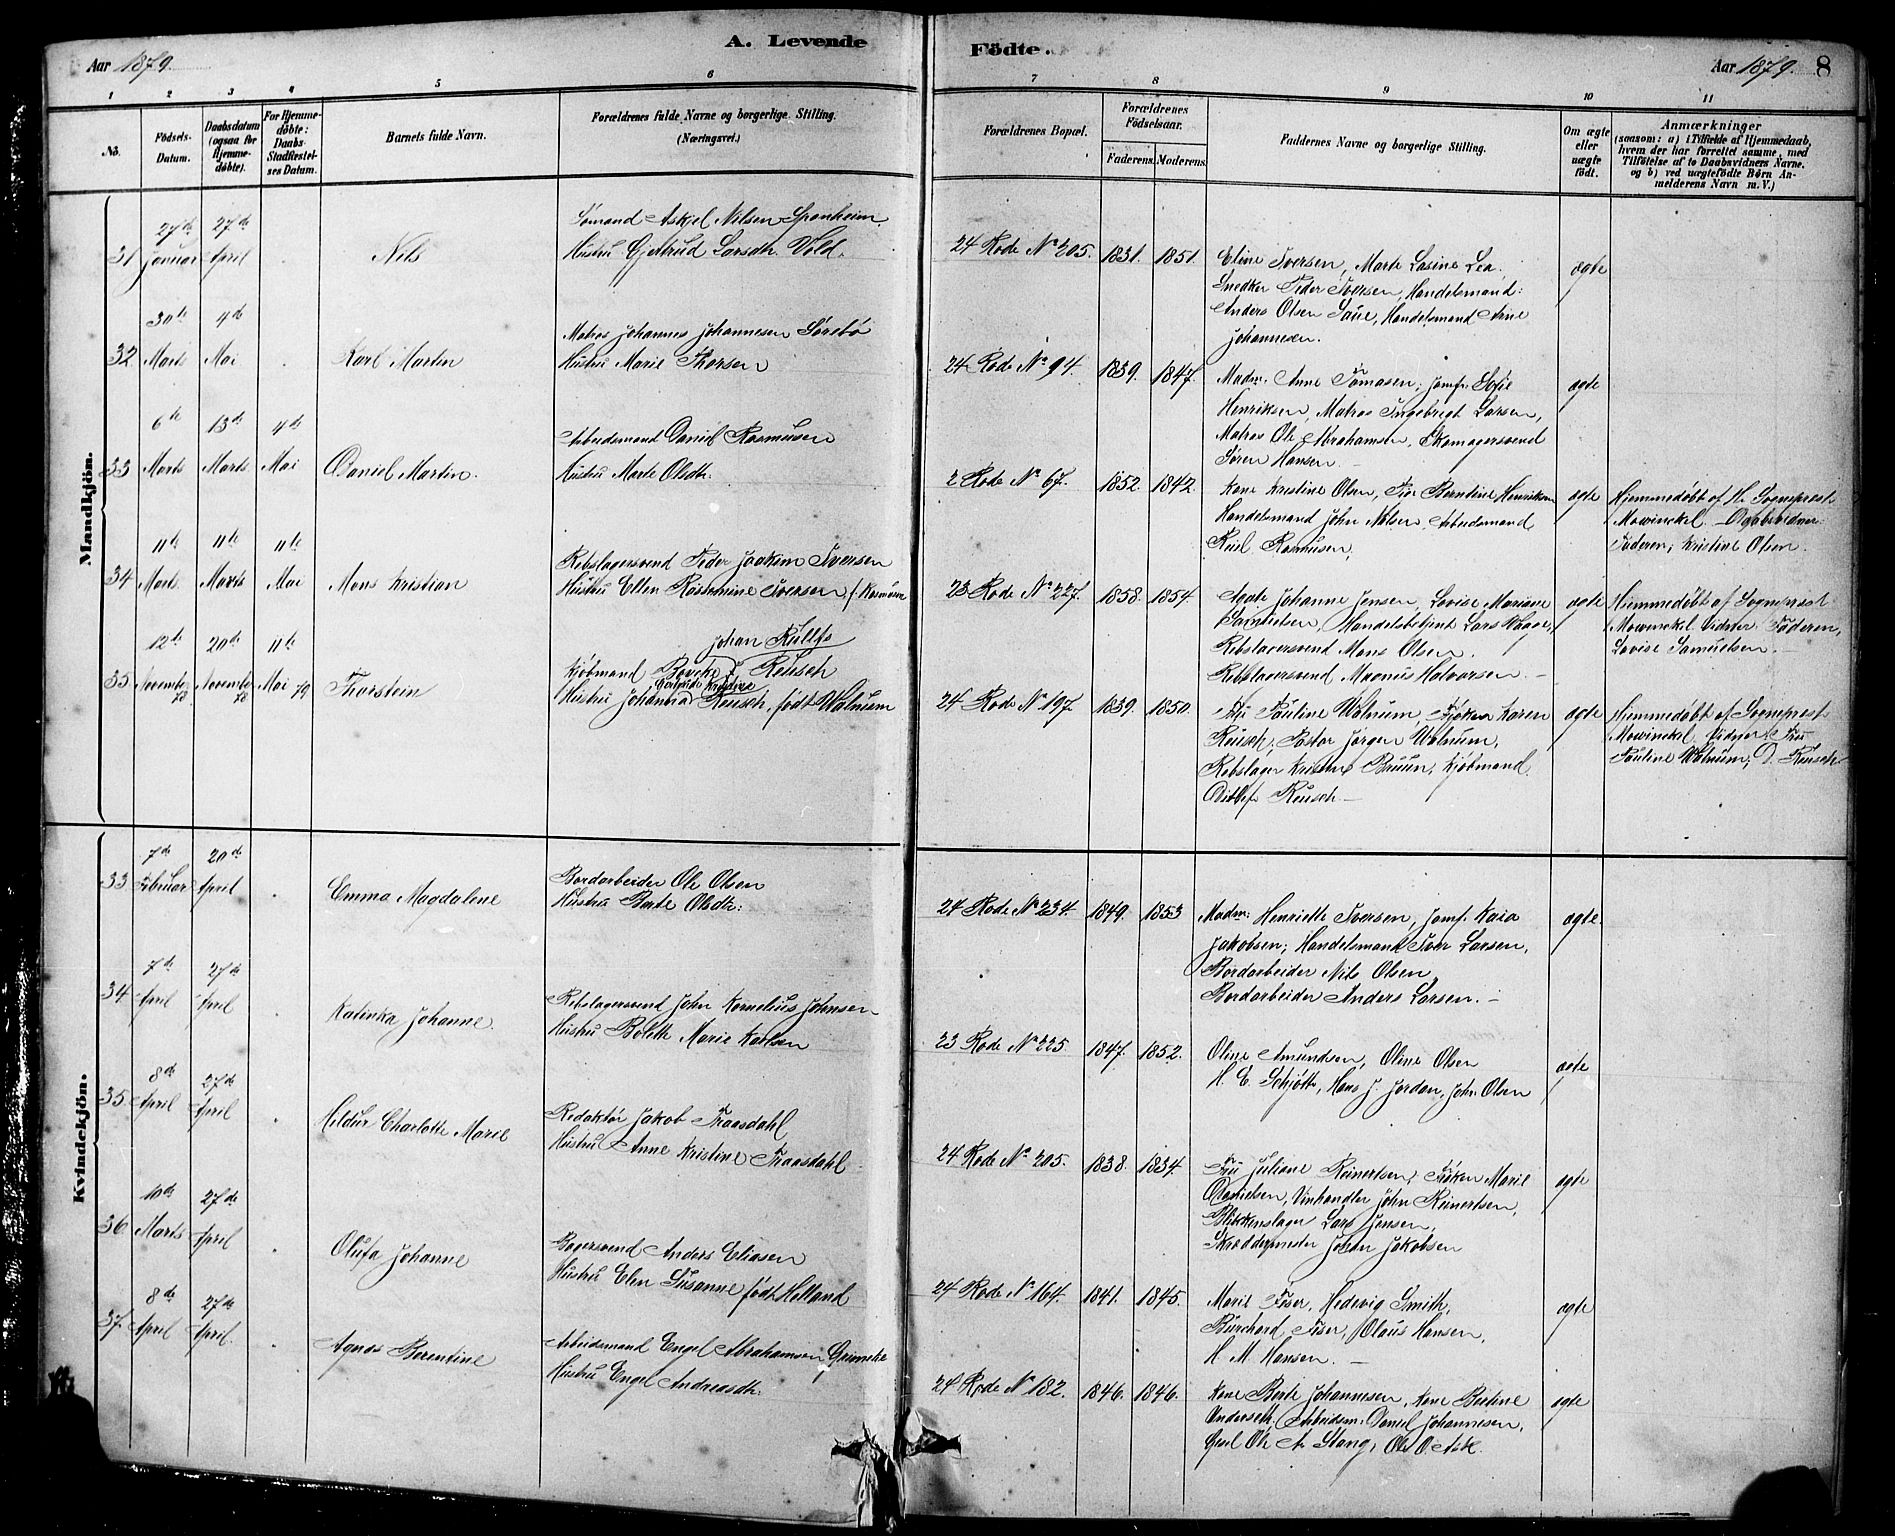 Aar 1879.
A. Levende
Födte.
Aar 1879.
8
1 2 3 4 5 6 7 8 9 10 11
No.
Födsels-Datum.
Daabsdatum (ogsaa for Hjemme-döbte).
For Hjemme-döbte: Daabs-Stadfestel-ses Datum.
Barnets fulde Navn.
Forældrenes fulde Navne og borgerlige Stilling.
(Næringsvei.)
Forældrenes Bopæl.
Forældrenes Födselsaar.
Faderens. Moderens.
Faddernes Navne og borgerlige Stilling.
Om ægte eller uægte födt.
Anmærkninger
(saasom: a) i Tilfælde af Hjemmedaab,
hvem der har forrettet samme, med
Tilföielse af to Daabsvidners Navne.
og b) ved uægtefödte Börn An-
melderens Navn m. V.)
Mandkjön.
31 27de Januar 27de April
Nils
Sømand Askjel Nilsen Sponheim.
Hustru Gjertrud Larsdtr. Vold.
24 Rode No 205. 1831. 1851.
Eline Iversen, Marte Lasine Lea.
Snedker Peder Iversen, Handelsmand:
Anders Olsen Saue, Handelsmand Arne
Johannesen.
ægte
32 30te Marts 4de Mai
Karl Martin
Matros Johannes Johannesen Sørebø
Hustru Marie Thorsen
24 Rode No 94. 1839. 1847.
Madm. Anne Tomasen, Jomfr. Sofie
Henriksen, Matros Ingebregt Larsen,
Matros Ole Abrahamsen, Skomagersvend
Søren Hansen. –
ægte
33 6te Marts 13de Marts 4de Mai
Daniel Martin.
Arbeidsmand Daniel Rasmusen
Hustru Marte Olsdtr.
2 Rode No 67. 1852. 1842.
Kone Kristine Olsen, Pige Berntine Henriksen
Handelsmand John Nilsen, Arbeidsmand
Reiel Rasmusen,
ægte
Hjemmedøbt af Hr. Sogneprest
Mowinckel – Daabsvidner:
Faderen, Kristine Olsen.
34 11te Marts 11te Marts 11te Mai
Mons Kristian
Rebslagersvend Peder Joakim Iversen
Hustru Ellen Rasmine Iversen f. Rasmusen
23 Rode No 227. 1858. 1854.
Agate Johanne Jensen, Lovise Mariane
Samuelsen, Handelsbetjent Lars Waage,
Rebslagersvend Mons Olsen.
Rebslagersvend Magnus Halvorsen. –
ægte
Hjemmedøbt af Sogneprest
Mowinckel. Vidner Faderen,
Lovise Samuelsen. –
35 12te November 78 20de November 78 11te Mai 79
Thorstein
Johan Rulffs
Kjøbmand Reusch
Gertrude Kristine
Hustru Johanna Reusch, født Wolnum
24 Rode No 197 1839. 1850.
Fru Pauline Wolnum, Frøken Karen
Reusch, Pastor Jørgen Wolnum,
Rebslager Kristine Bruun, Kjøbmand
Ditlef Reusch –
ægte
Hjemmedøbt af Sogneprest
Mowinckel. Vidner Fru
Pauline Wolnum, D. Reusch
Kvindekjön.
33 7de Februar 20de April
Emma Magdalene
Bordarbeider Ole Olsen
Hustru Berte Olsdtr:
24 Rode No 234. 1849. 1853
Madm: Henriette Iversen, Jomf. Kaia
Jakobsen, Handelsmand Iver Larsen,
Bordarbeider Nils Olsen
Bordarbeider Anders Larsen. –
ægte.
34 7de April 27de April
Katinka Johanne.
Rebslagersvend John Kornelius Johnsen
Hustru Bolette Marie Karlsen
23 Rode No 225. 1847. 1852.
Oline Amundsen, Oline Olsen
H. E. Schjøtt, Hans J. Jordan, John Olsen
ægte
35 8de April 27de April
Hildur Charlotte Marie
Redaktør Jakob Traasdahl
Hustru Anne Kristine Traasdahl
24 Rode No 205. 1838. 1834.
Fru Juliane Reinertsen, Frøken Marie
Danielsen, Vinhandler John Reinertsen,
Blikkenslager Lars Jensen,
Skræddermester Johan Jakobsen
ægte
36 10de Marts 27de April
Olufa Johanne
Bagersvend Anders Eliasen
Hustru Elen Susanne født Helland
24 Rode No 164. 1841. 1845.
Marie Fiser, Hedevig Smith,
Burchard Fiser, Olaus Hansen,
H. M. Hansen. –
ægte
37. 8de April 27de April.
Agnes Berentine
Arbeidsmand Engel Abrahamsen Grimele
Hustru Engel Andreasdtr.
24 Rode No 182. 1846. 1846.
Kone Berte Johannesen, Kone Bertine
Andersdtr. Arbeidsm. Daniel Johannesen,
Ole A. Stang, Ole O. Ask.
ægte